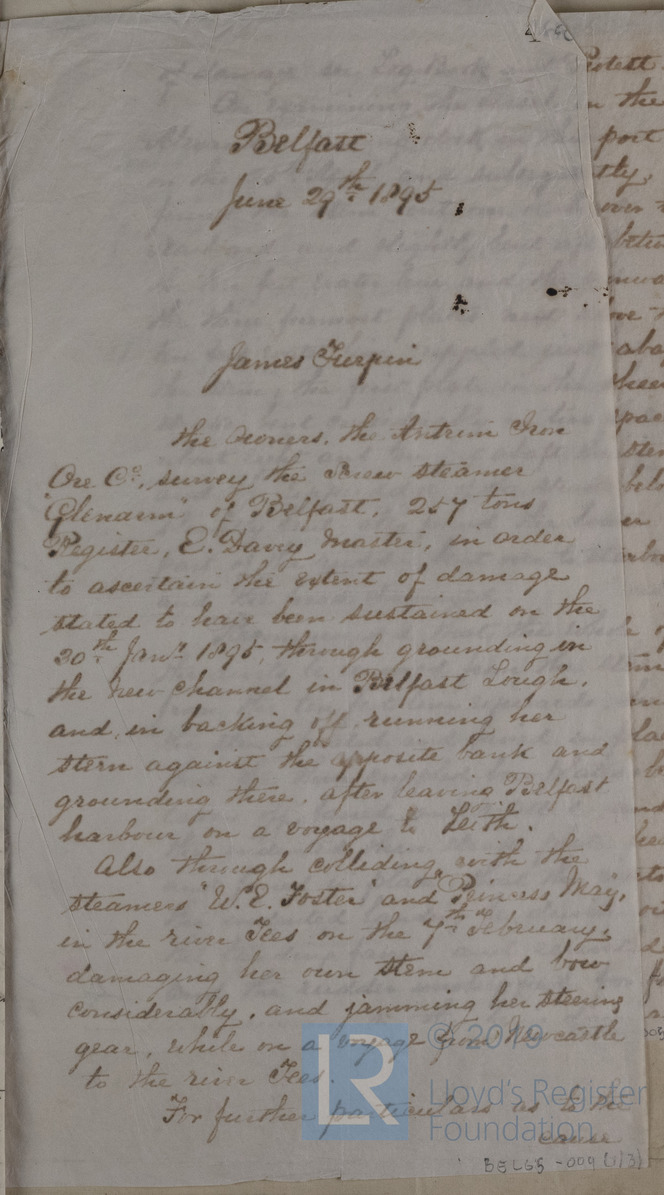 Belfast
June 29th 1895
James Turpin
the owners, the Antrim Iron
Ore Co, survey the screw steamer
"Glenarm" of Belfast, 257 tons
Register, E. Davey Master, in order
to ascertain the extent of damage
stated to have been sustained on the
30th Jany 1895, through grounding in
the new channel in Belfast Lough,
and in backing off running her
stern against the opposite bank and
grounding there, after leaving Belfast
harbour on a voyage to Leith.
Also through colliding with the
steamers "W. E. Foster" and Princess May,
in the river Tees on the 7th February,
damaging her own stem and bow
considerably, and jamming her steering
gear, while on a voyage from Newcastle
to the river Tees.
For further particulars as to the
cause
© 2019
LR
Lloyd's Register
Foundation
BEL65-009 (1/3)
Protest
in the
port
over